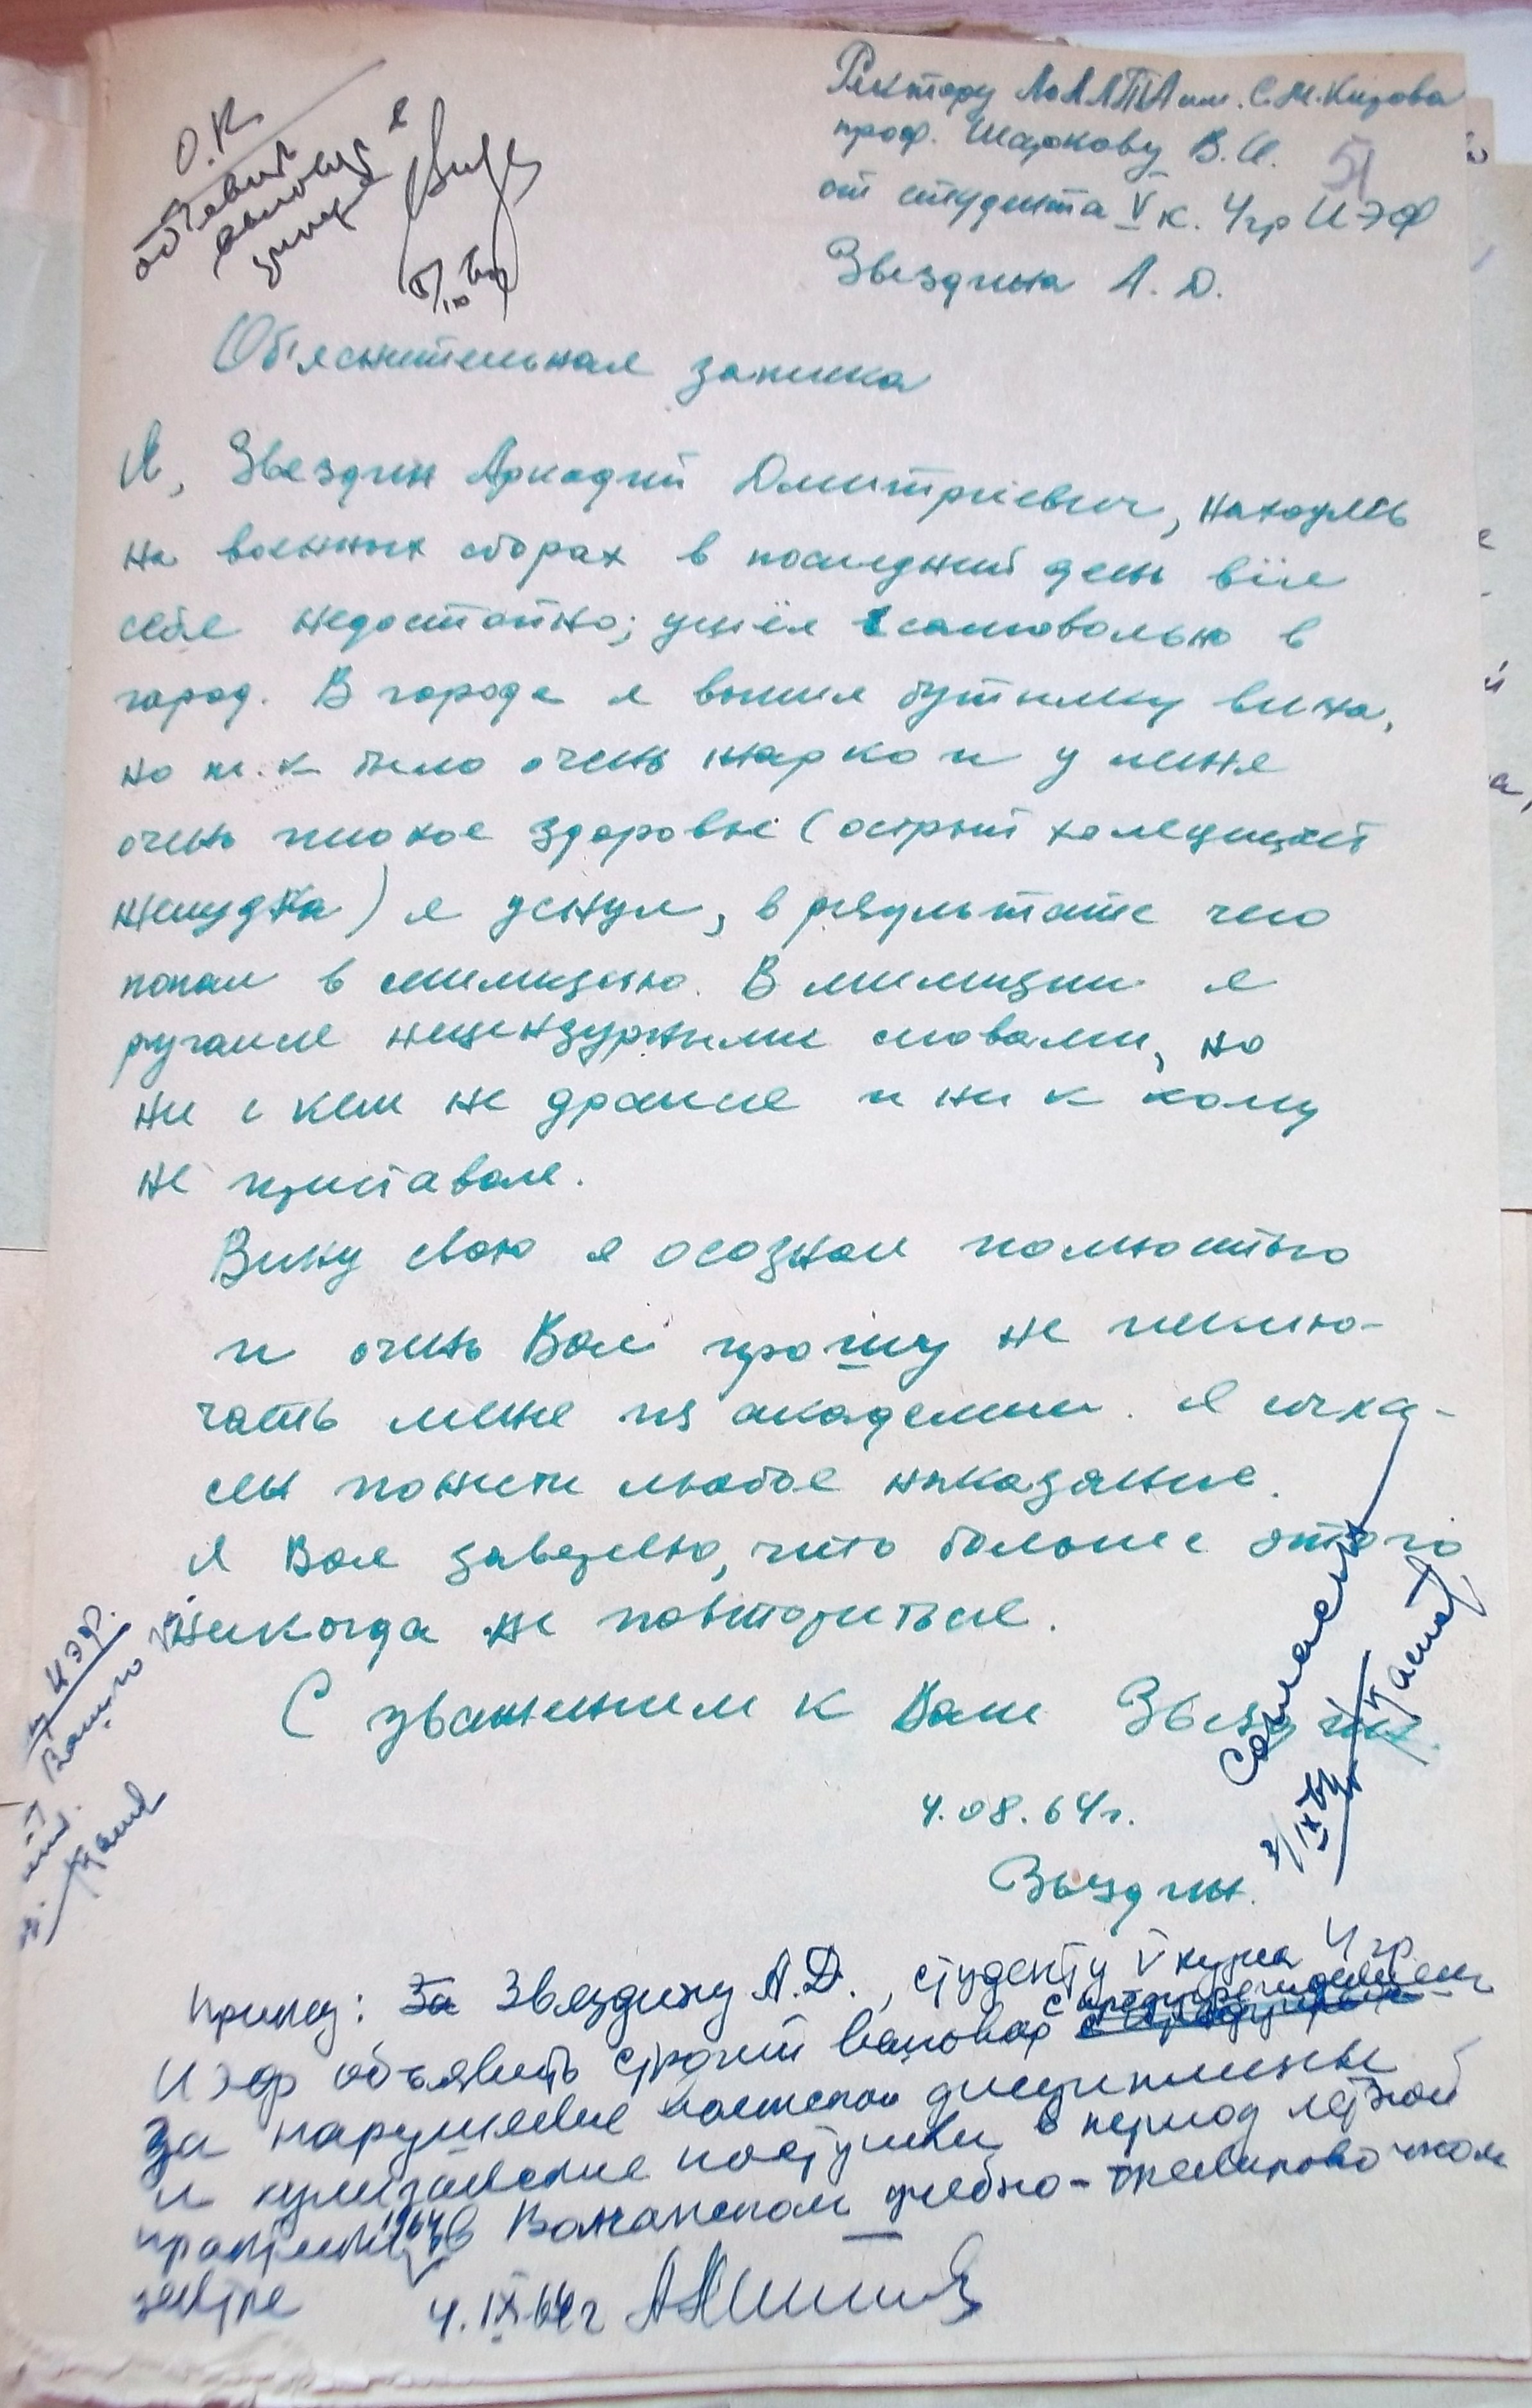 Ректору ЛоЛЛТА им. С.М.Кирова
проф. Шаркову В.И.
51
от студента V к. 4гр ИЭФ
Звездина А. Д.
О.К.
объявит
выговор
5/IX 64
Объяснительная записка
Я, Звездин Аркадий Дмитриевич, находясь
на военных сборах в последний день вёл
себя недостойно; ушёл самовольно в
город. В городе я выпил бутылку вина,
но т.к было очень жарко и у меня
очень плохое здоровье (острый холецистит
желудка) я уснул, в результате чего
попал в милицию. В милиции я
ругался нецензурными словами, но
ни с кем не дрался и ни к кому
не приставал.
Вину свою я осознал полностью
и очень Вас прошу не исклю-
чать меня из академии. Я согла-
сен понести любое наказание.
Я Вас заверяю, что больше этого
никогда не повториться.
С уважением к Вам Звездин.
4.08.64г.
Звездин.
Согласен
3/IX 64
ИЭФ.
Приказ: За Звездину А.Д., студенту V курса 4 гр.
ИЭФ объявить строгий выговор с предупреждением
за нарушение воинской дисциплины
и хулиганские поступки в период летней
практики 1964 в Волжанском учебно-тренировочном
центре
4.IX.64г